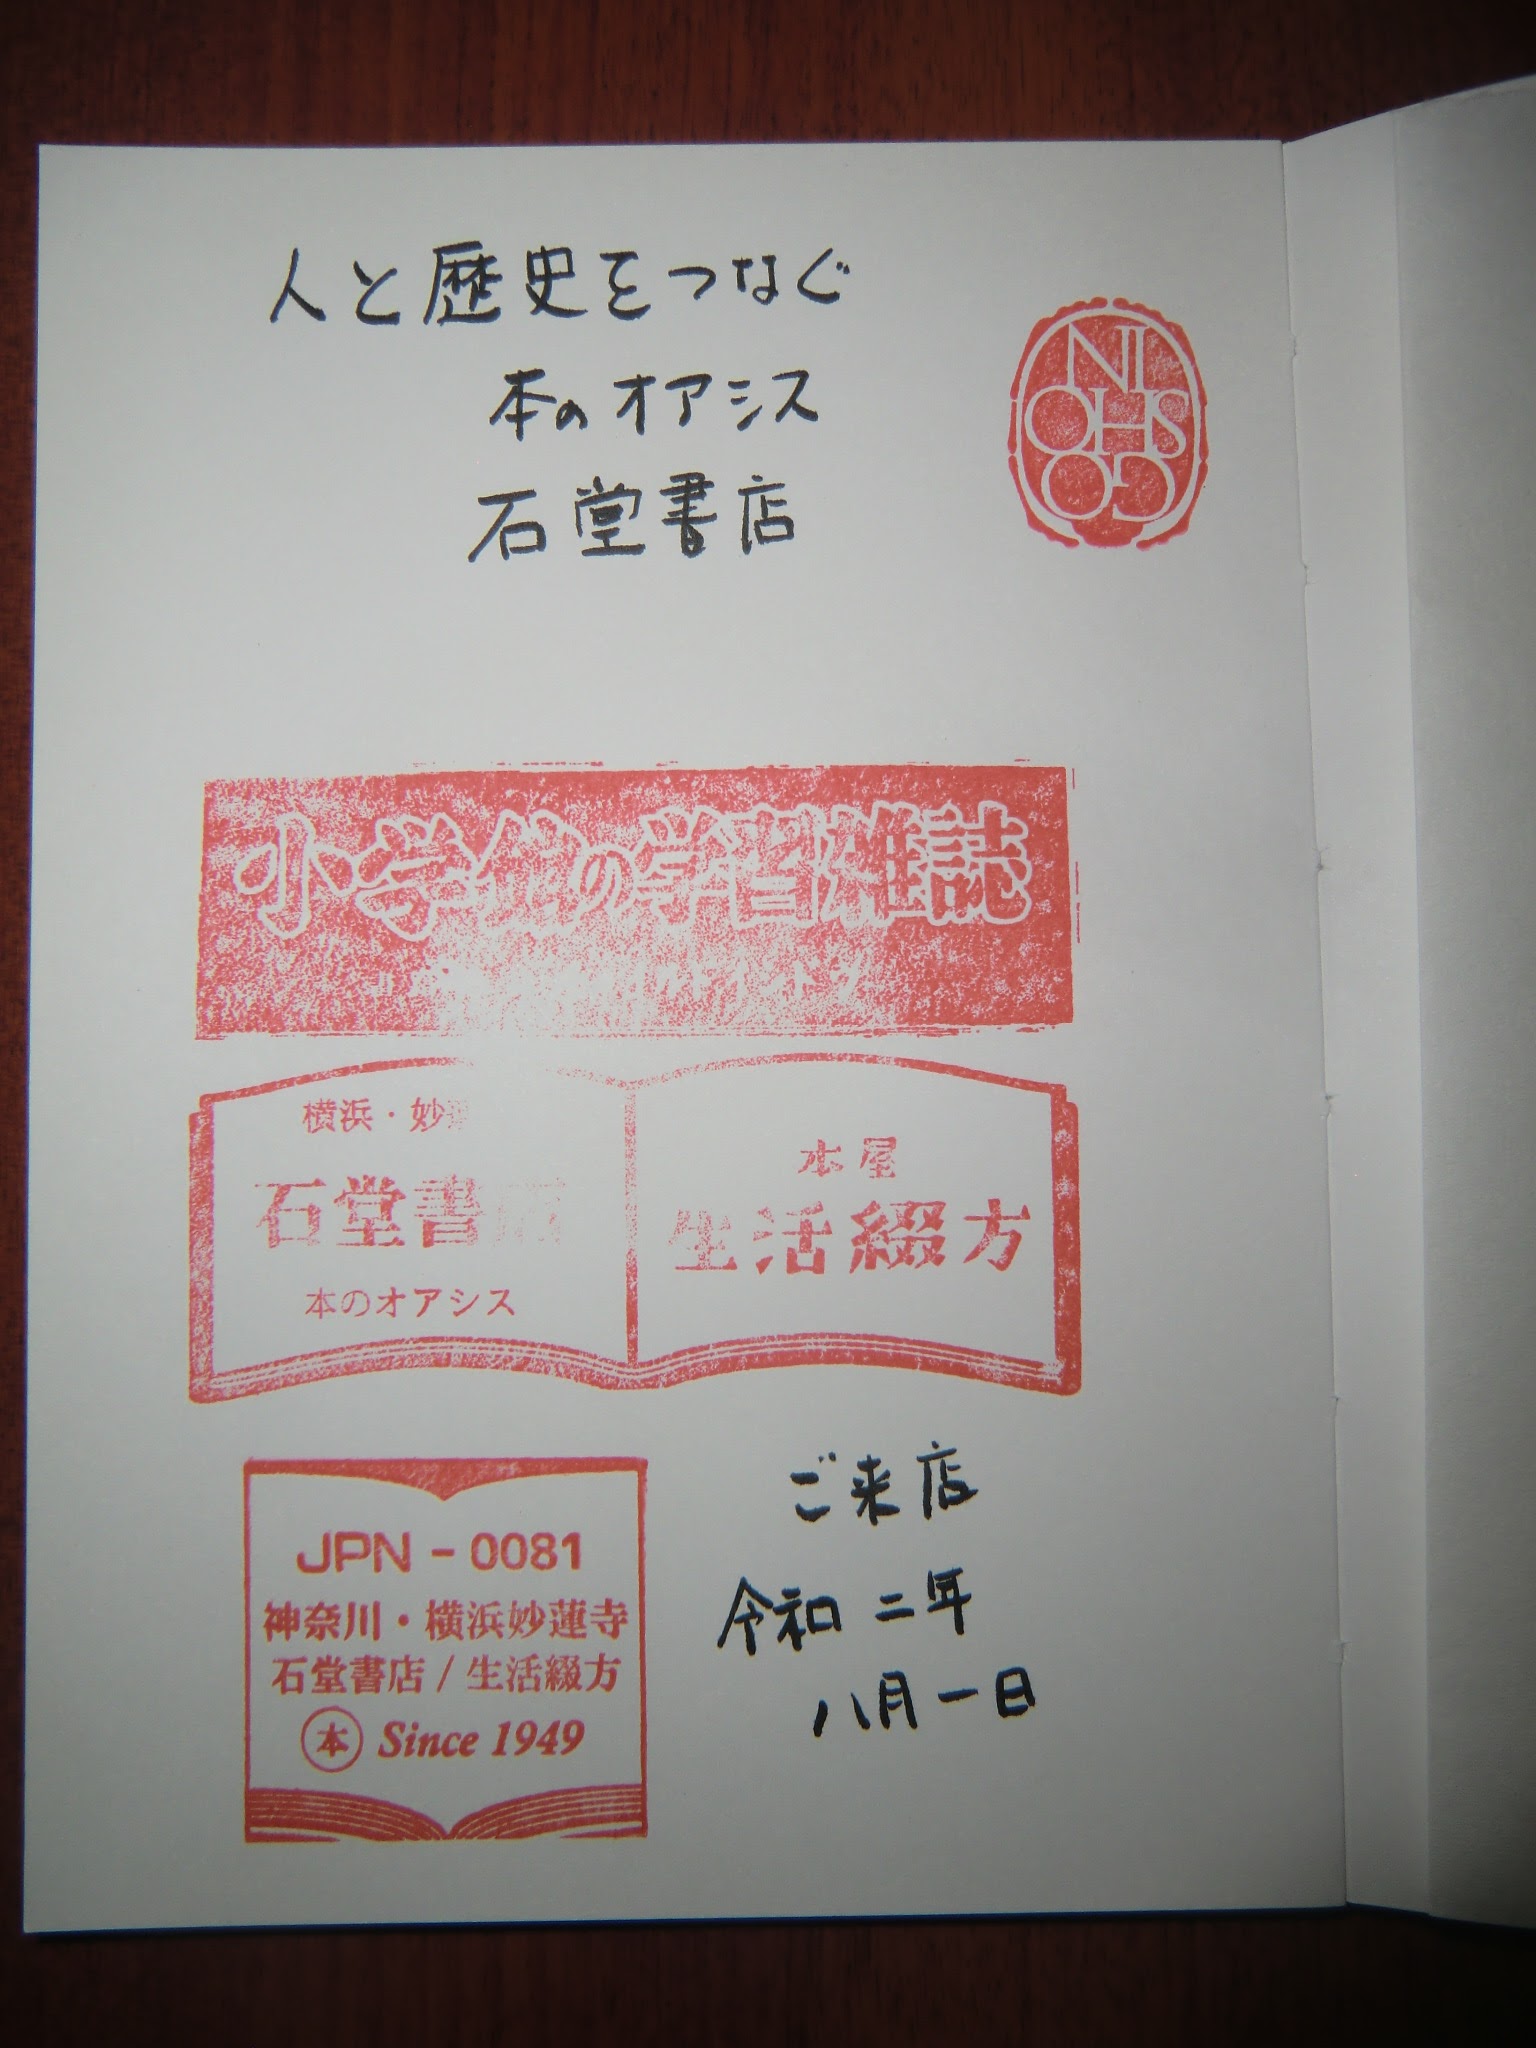 人と歴史をつなぐ
本のオアシス
石堂書店
NI
OHS
GO
小学館の学習雑誌
横浜・妙蓮
石堂書店
本のオアシス
本屋
生活綴方
JPN - 0081
神奈川・横浜妙蓮寺
石堂書店 / 生活綴方
本 Since 1949
ご来店
令和二年
八月一日